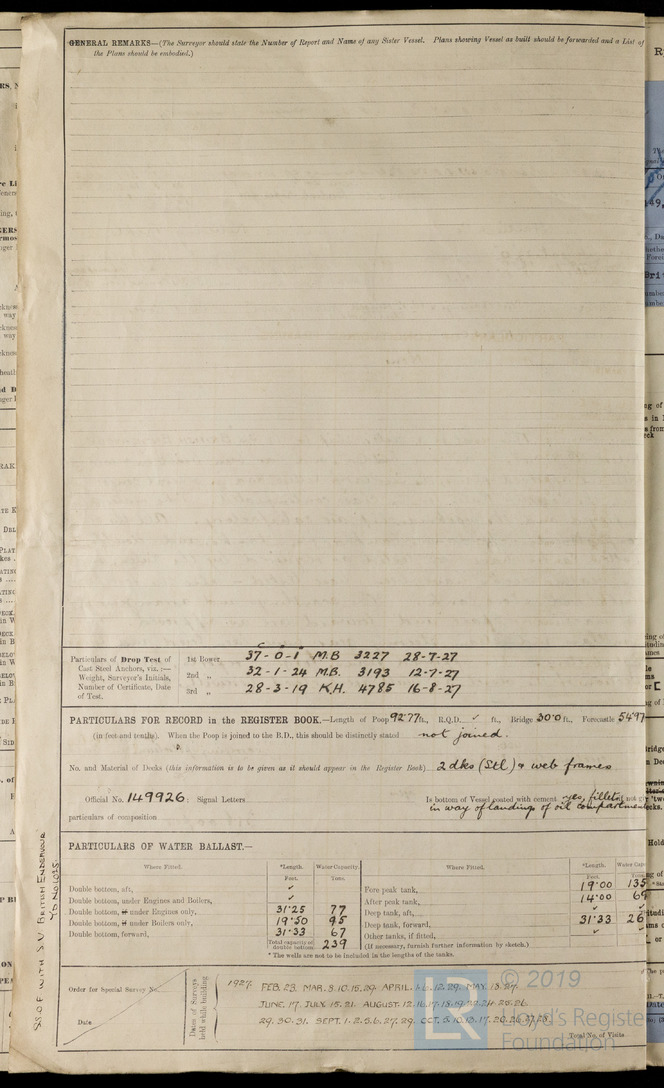 GENERAL REMARKS—(The Surveyor should state the Number of Report and Name of any Sister Vessel. Plans showing Vessel as built should be forwarded and a List of
the Plans should be embodied.)
Particulars of Drop Test of
Cast Steel Anchors, viz. :—
Weight, Surveyor's Initials,
Number of Certificate, Date
of Test.
1st Bower 37-0-1 M.B 3227 28-7-27
2nd „ 32-1-24 M.B. 3193 12-7-27
3rd „ 28-3-19 K.H. 4785 16-8-27
PARTICULARS FOR RECORD in the REGISTER BOOK.—Length of Poop 92.77 ft., R.Q.D. ✓ ft., Bridge 30.0 ft., Forecastle 54.97
(in feet and tenths). When the Poop is joined to the B.D., this should be distinctly stated not joined.
No. and Material of Decks (this information is to be given as it should appear in the Register Book) 2 dks (Stl) & web frames
Official No. 149926 ; Signal Letters Is bottom of Vessel coated with cement yes, fillets not
particulars of composition in way of landings of oil compartment
PARTICULARS OF WATER BALLAST.—
Where Fitted. *Length. Water Capacity. Where Fitted. *Length. Water Cap
Feet. Tons. Feet. Tons.
Double bottom, aft, ✓ Fore peak tank, 19.00 135
Double bottom, under Engines and Boilers, ✓ After peak tank, 14.00 69
Double bottom, if under Engines only, 31.25 77 Deep tank, aft, ✓ ✓
Double bottom, if under Boilers only, 19.50 95 Deep tank, forward, 31.33 26
Double bottom, forward, 31.33 67 Other tanks, if fitted, ✓ ✓
Total capacity of double bottom 239 (If necessary, furnish further information by sketch.)
* The wells are not to be included in the lengths of the tanks.
Order for Special Survey No.
Date
Dates of Surveys held while building
1927. FEB. 23. MAR. 8. 10. 15. 29. APRIL. 12. 29. MAY. 13. 27.
JUNE. 17. JULY. 15. 21. AUGUST. 12. 16. 17. 18. 19. 24. 25. 26.
29. 30. 31. SEPT. 1. 2. 5. 6. 27. 29. OCT. 5. 10. 17. 20. 26. 27. 28.
Total No. of Visits
SISTER WITH S.V BRITISH ENDEAVOUR
Yd No 1025
© 2019
Lloyd's Registe
Foundation